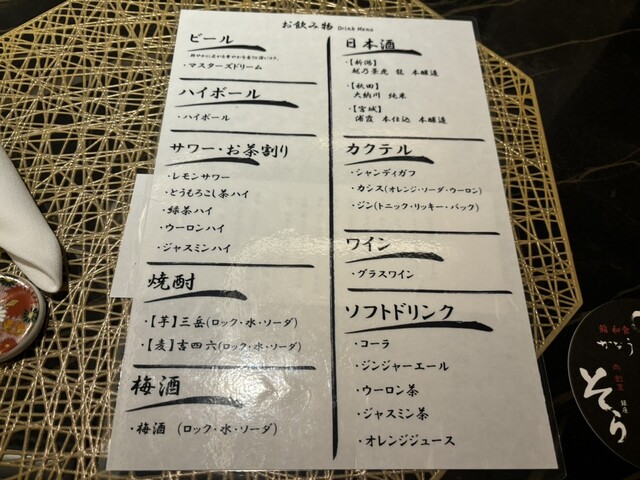 お飲み物 Drink Menu
ビール
・マスターズドリーム
ハイボール
・ハイボール
サワー・お茶割り
・レモンサワー
・とうもろこし茶ハイ
・緑茶ハイ
・ウーロンハイ
・ジャスミンハイ
焼酎
・【芋】三岳(ロック・水・ソーダ)
・【麦】吉四六(ロック・水・ソーダ)
梅酒
・梅酒 (ロック・水・ソーダ)
日本酒
・【新潟】
越乃景虎 龍 本醸造
・【秋田】
大納川 純米
・【宮城】
浦霞 本仕込 本醸造
カクテル
・シャンディガフ
・カシス(オレンジ・ソーダ・ウーロン)
・ジン(トニック・リッキー・バック)
ワイン
・グラスワイン
ソフトドリンク
・コーラ
・ジンジャーエール
・ウーロン茶
・ジャスミン茶
・オレンジジュース
そら
銀座